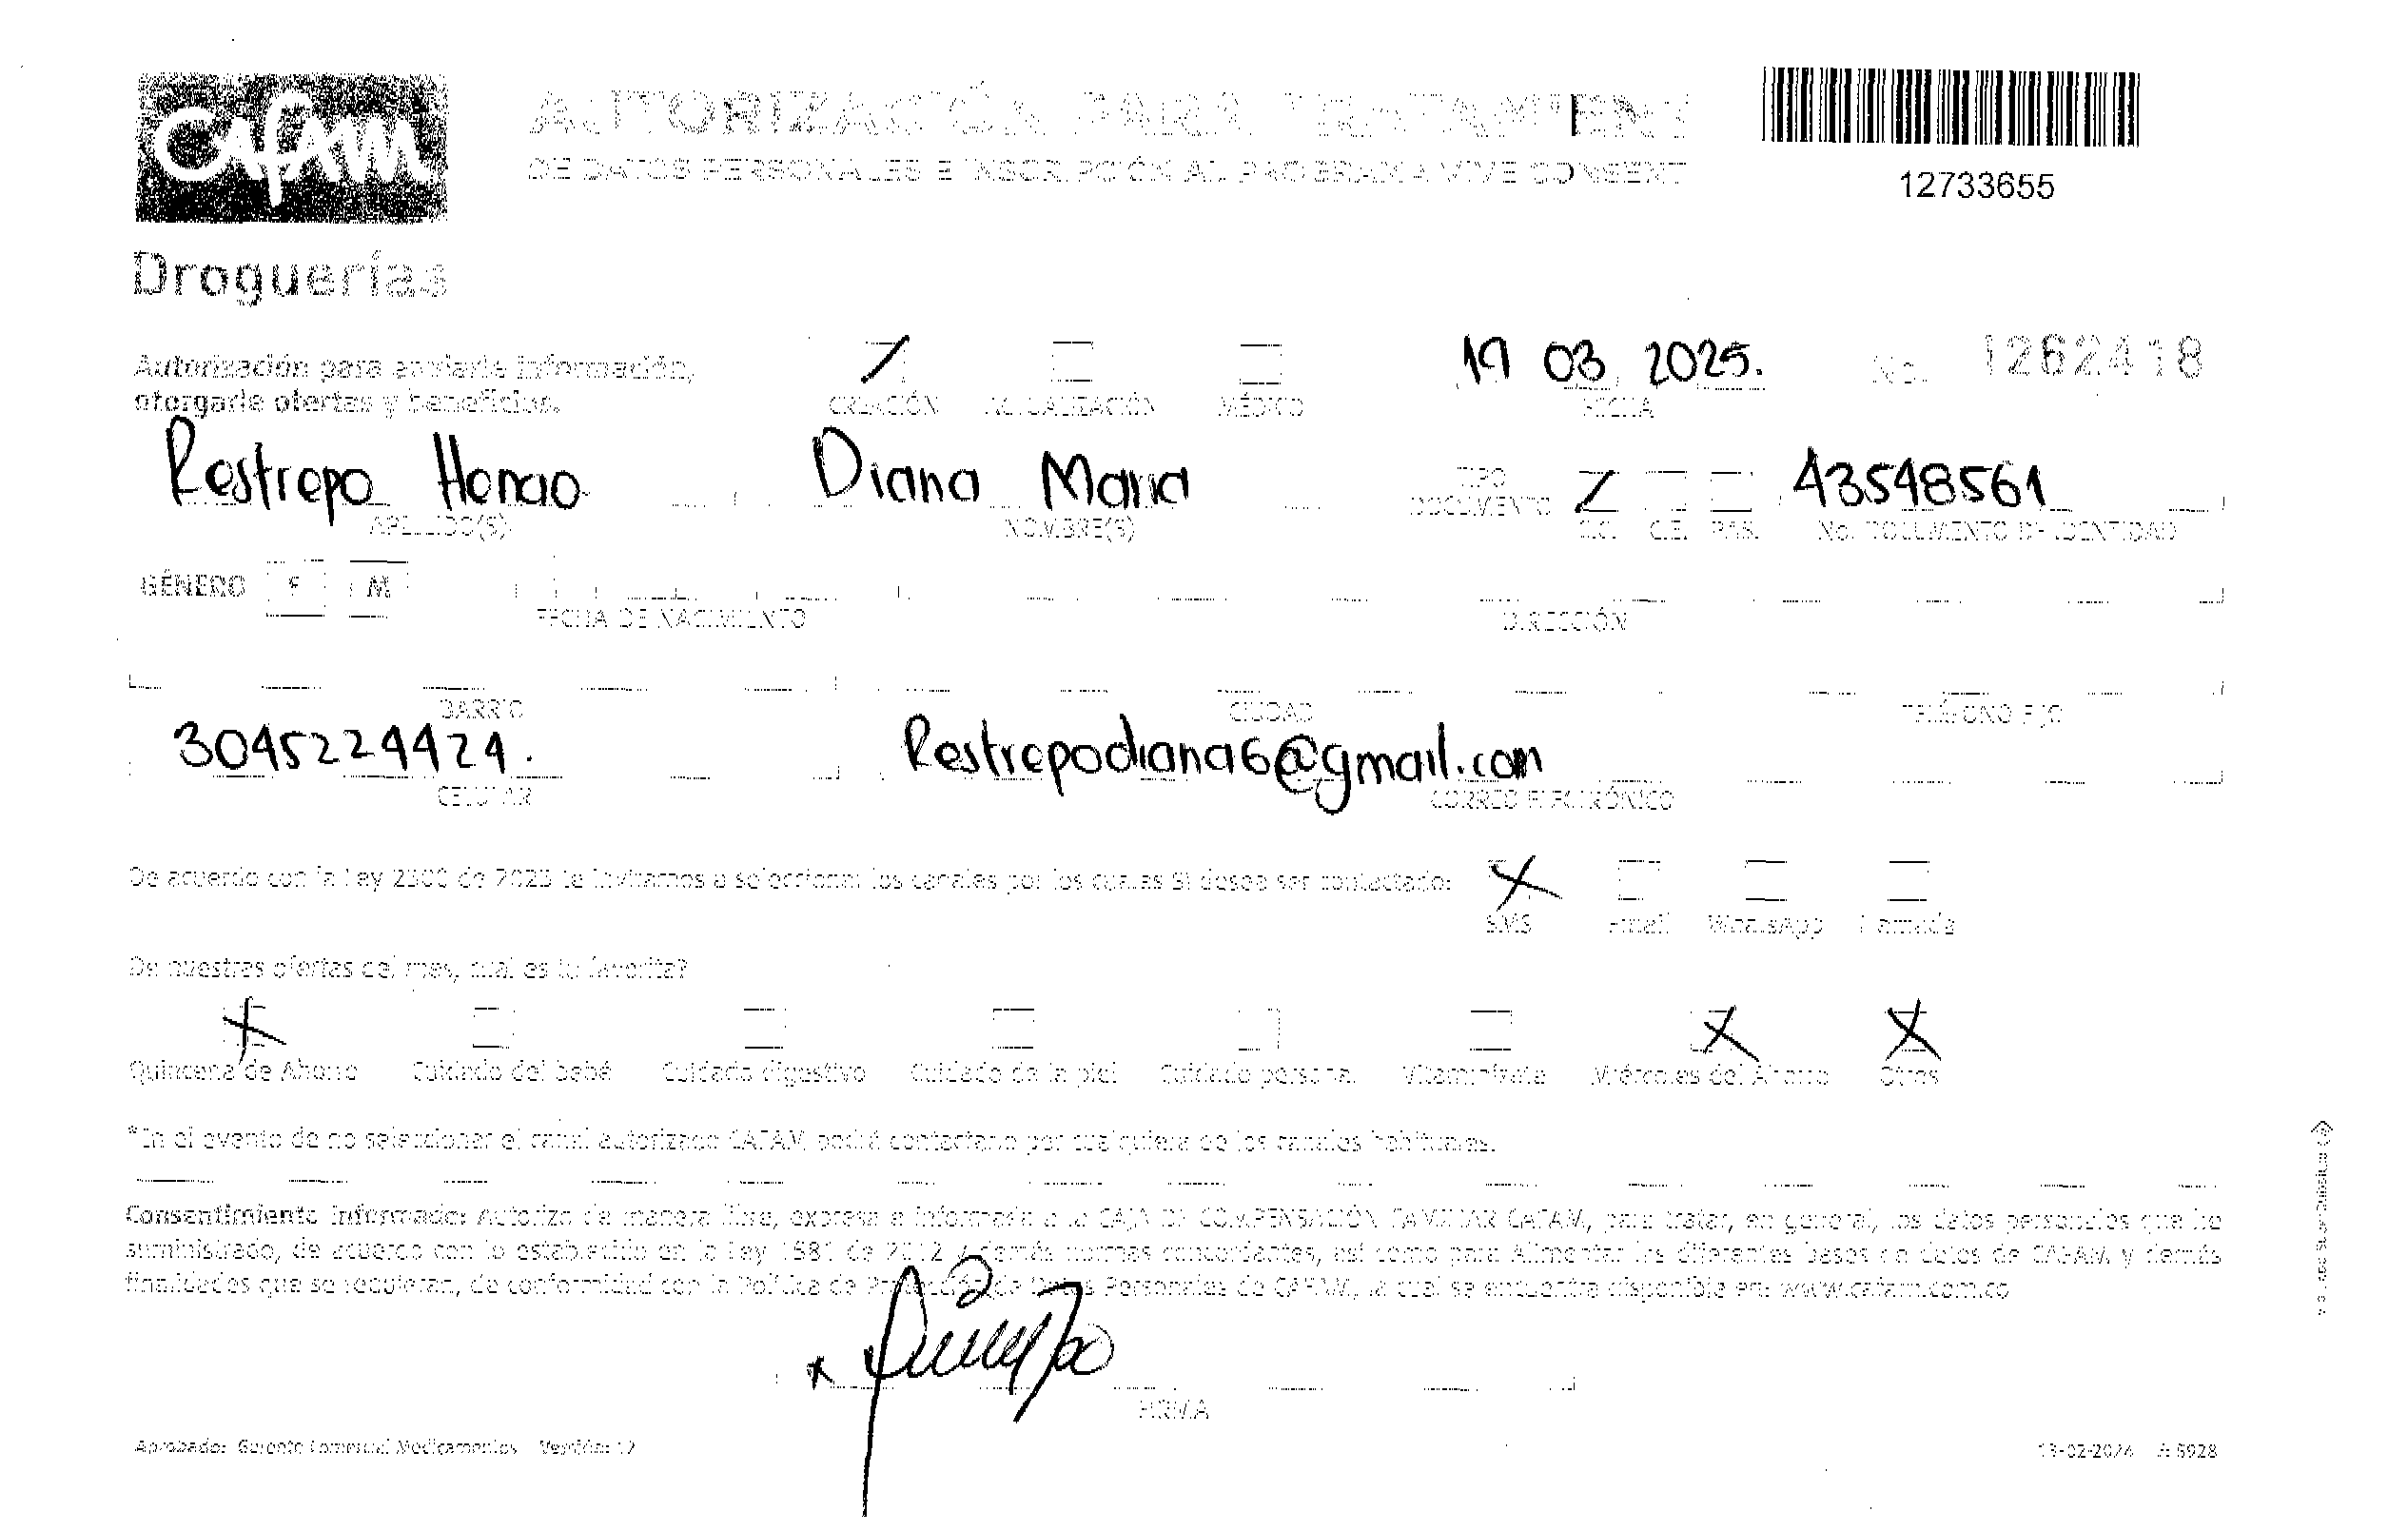 Cafam
Droguerías
AUTORIZACIÓN PARA TRATAMIENT
DE DATOS PERSONALES E INSCRIPCIÓN AL PROGRAMA VIVE CONSENT
12733655
Autorización para enviarle información,
otorgarle ofertas y beneficios.
CREACIÓN ACTUALIZACIÓN MÉDICO
19 03 2025.
FECHA
No. 1262418
Restrepo Henao Diana Maria
TIPO DOCUMENTO
43548561
APELLIDO(S) NOMBRE(S) C.C. C.E. PAS. No. DOCUMENTO DE IDENTIDAD
GÉNERO F M
FECHA DE NACIMIENTO DIRECCIÓN
BARRIO CIUDAD TELÉFONO FIJO
3045224424. Restrepodiana6@gmail.com
CELULAR CORREO ELECTRÓNICO
De acuerdo con la Ley 2300 de 2023 te invitamos a seleccionar los canales por los cuales SI desea ser contactado:
SMS Email WhatsApp Llamada
De nuestras ofertas del mes, cual es tu favorita?
Quincena de Ahorro Cuidado del bebé Cuidado digestivo Cuidado de la piel Cuidado personal Vitamínfrate Miércoles del Ahorro Otros
*En el evento de no seleccionar el canal autorizado CAFAM podrá contactarlo por cualquiera de los canales habituales.
Consentimiento Informado: Autorizo de manera libre, expresa e informada a la CAJA DE COMPENSACIÓN FAMILIAR CAFAM, para tratar, en general, los datos personales que he
suministrado, de acuerdo con lo establecido en la Ley 1581 de 2012 y demás normas concordantes, así como para Alimentar las diferentes bases de datos de CAFAM y demás
finalidades que se requieran, de conformidad con la Política de Protección de Datos Personales de CAFAM, la cual se encuentra disponible en: www.cafam.com.co
FIRMA
Aprobado: Gerente Comercial Medicamentos Versión: 12
13-02-2024 A 5928